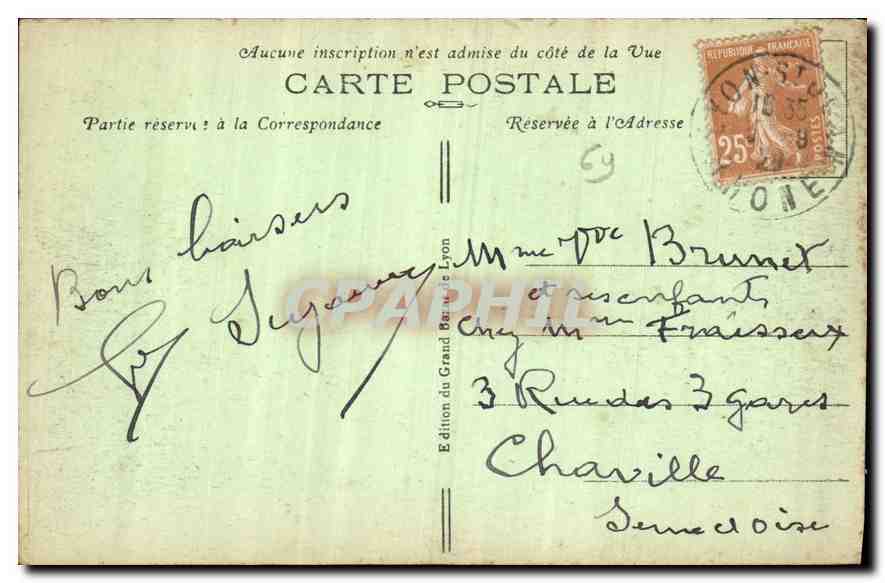 Aucune inscription n'est admise du côté de la Vue
CARTE POSTALE
Partie réservée à la Correspondance
Réservée à l'Adresse
RÉPUBLIQUE FRANÇAISE
25
POSTES
LYON-ST
18 35
RHONE
69
Bons baisers
Suzanne
Edition du Grand Bazar de Lyon
CPAPHIL
Mme Vve Brunet
et ses enfants
chez Mme Fraisseix
3 Rue des 3 gares
Chaville
Seine et Oise